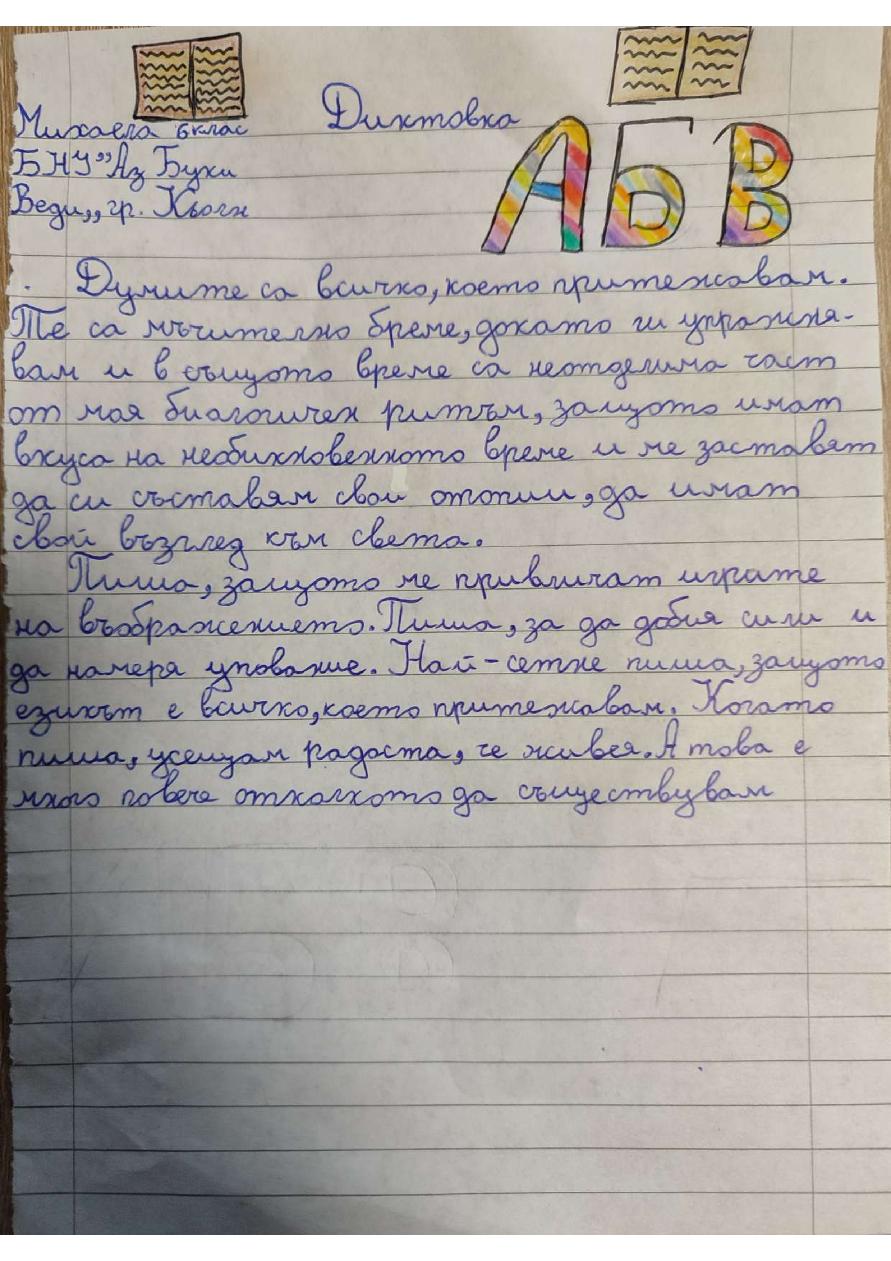 Диктовка
Михаела 6 клас
БНУ "Аз Буки
Веди,, гр. Кьолн
А Б В
Думите са всичко, което притежавам.
Те са мъчително бреме, докато ги упражня-
вам и в същото време са неотделима част
от моя биологичен ритъм, защото имат
вкуса на необикновенното време и ме заставят
да си съставям свои отопии, да имат
свой възглед към света.
Пиша, защото ме привличат играте
на въображението. Пиша, за да добия сили и
да намеря упование. Най-сетне пиша, защото
езикът е всичко, което притежавам. Когато
пиша, усещам радоста, че живея. А това е
много повече отколкото да съществувам